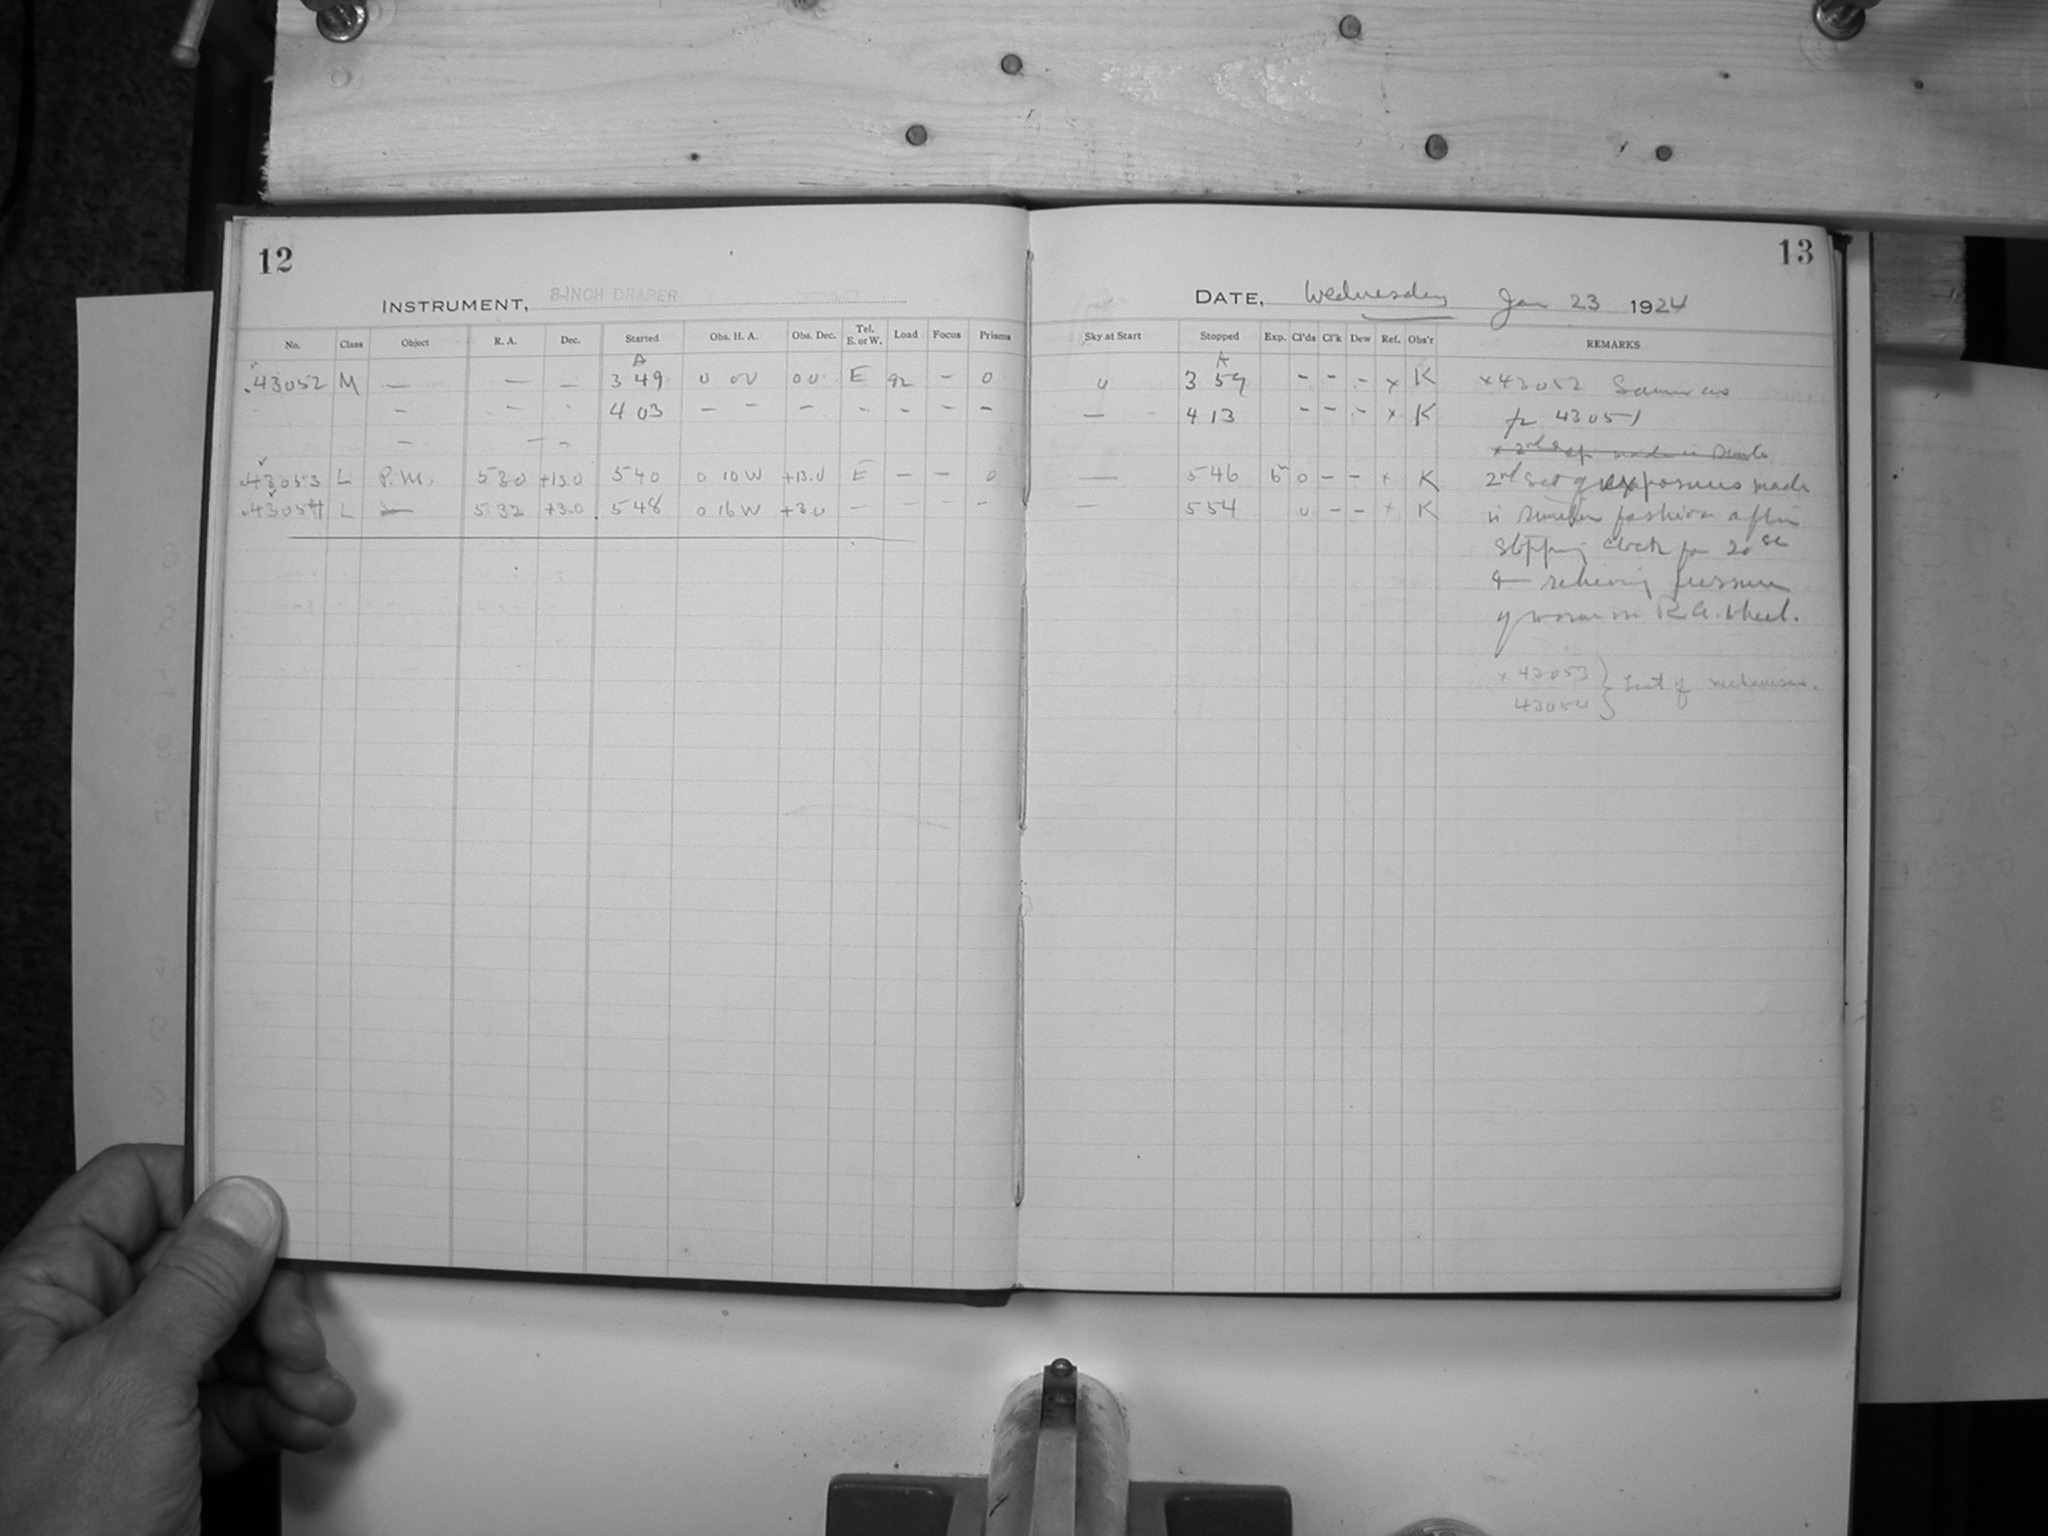 12
INSTRUMENT, 8-INCH DRAPER
No. Class Object R. A. Dec. Started Obs. H. A. Obs. Dec. Tel. E. or W. Load Focus Prisms
A
43052 M — — — 3 49 0 00 00 E 92 – 0
– – – 4 03 – – – – – – –
– – –
43053 L P.M. 5 30 +13.0 5 40 0 10 W +13.0 E – – 0
43054 L 5 32 +3.0 5 48 0 16 W +3.0 – – – –
13
DATE, Wednesday Jan 23 1924
Sky at Start Stopped Exp. Cl'ds Cl'k Dew Ref. Obs'r REMARKS
A
0 3 59 – – – x K x 43052 Same as
— 4 13 – – – x K for 43051
— 5 46 5 0 – – x K 2nd set of exposures made
— 5 54 0 – – x K in similar fashion after
stopping clock for 20 sec
& relieving pressure
of worm on R.A. wheel.
x 43053
43054 } Test of mechanism.